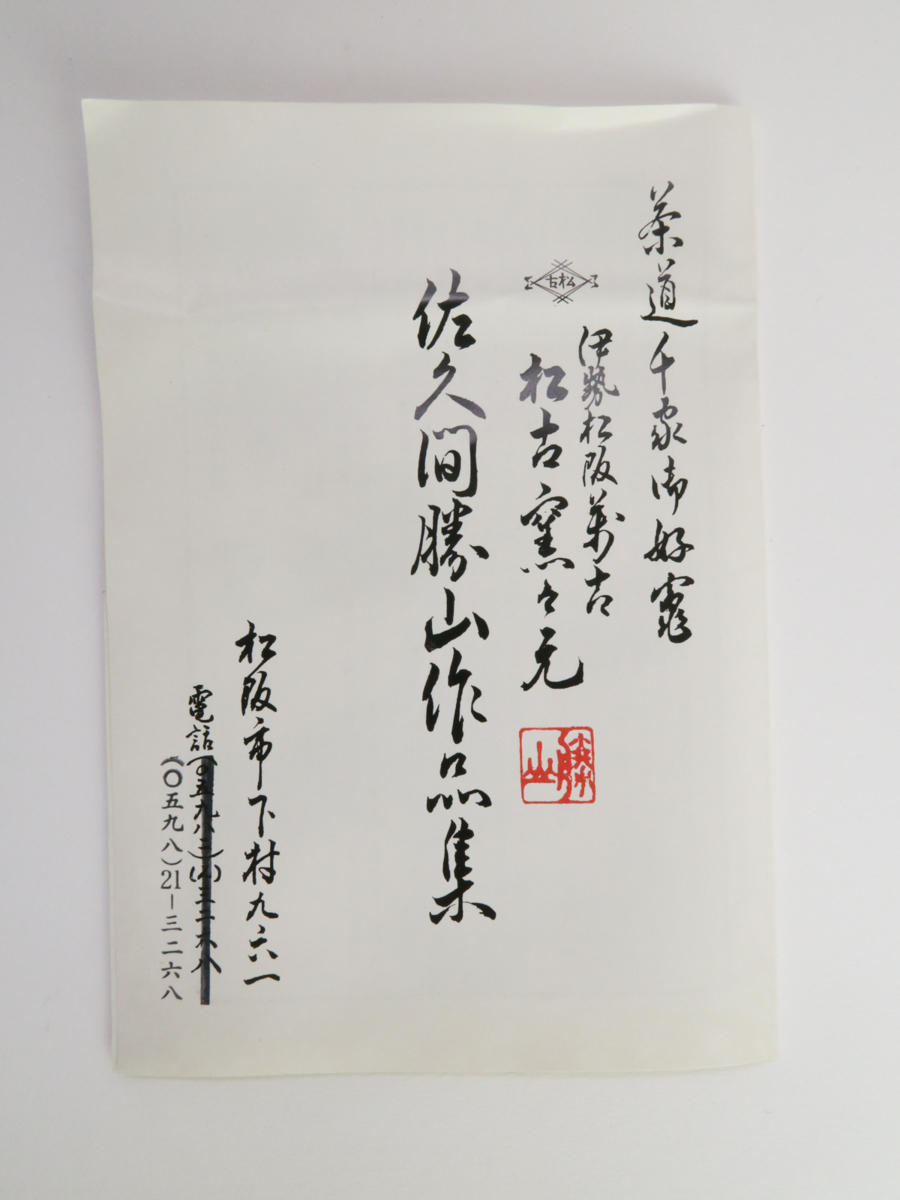 茶道千家御好竈
松古
伊勢松阪萬古
松古窯々元
勝山
佐久間勝山作品集
松阪市下村九六一
電話
(〇五九八)21-三二六八